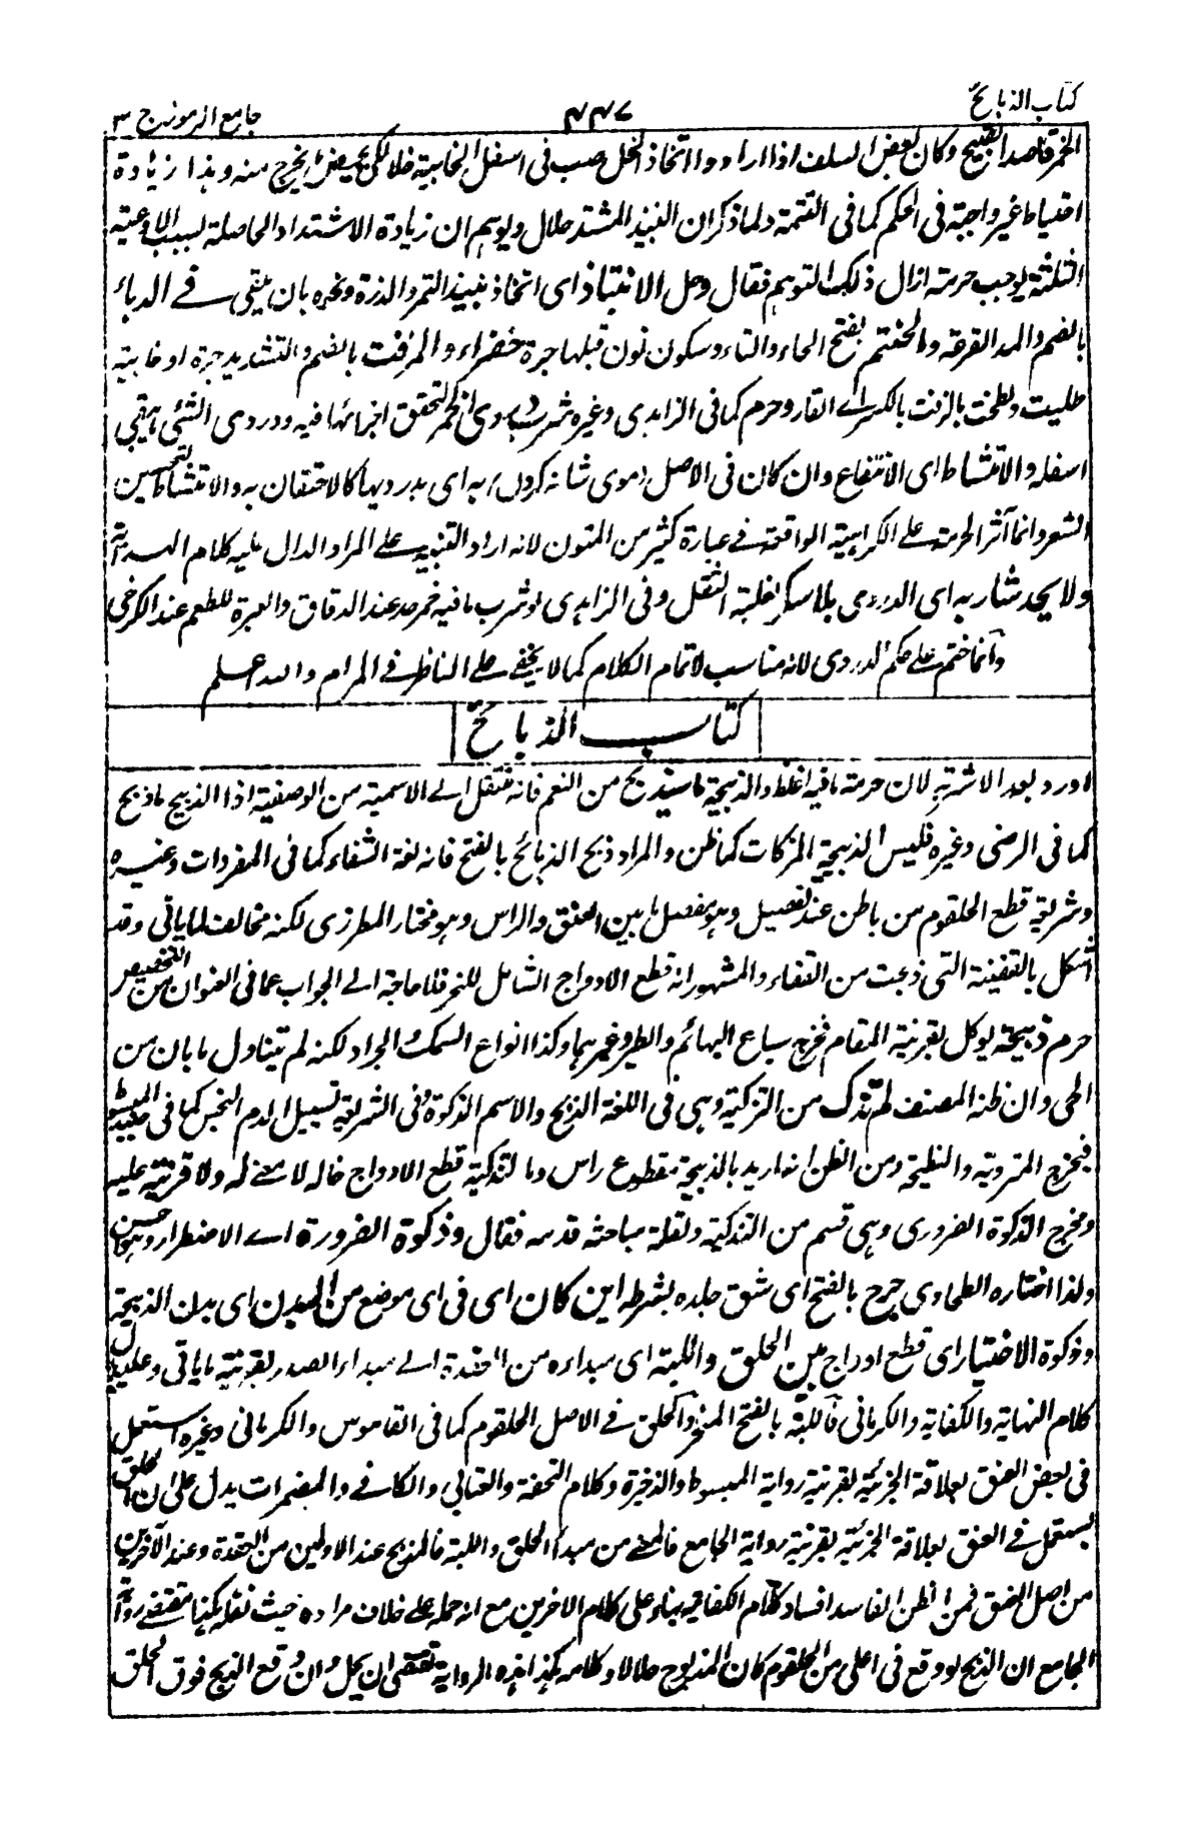 كتاب الذبائح
٤٤٧
جامع الرموز ج ٣
الخمر قاصد القبيح وكان لبعض السلف اذا ارادوا اتخاذ الخل صب فى اسفل الخابية خلا لكى يحيض يخرج منه وهذا زيادة
احتياط غير واجبة فى الحكم كما فى التتمة ولما ذكر ان النبيذ المشتد حلال ويوهم ان زيادة الاشتداد الحاصلة بسبب الاوعية
الثلثة يوجب حرمته ازال ذلك التوهم فقال وحل الانتباذ اى اتخاذ نبيذ التمر والذرة ونحوه بان يلقى فے الدباء
بالضم والمد القرعة والحنتم بفتح الحاء والتاء وسكون نون قبلها جرة خضراء والمزفت بالضم والتشديد جرة او خابية
طليت ولطخت بالزفت بالكسر اے القار وحرم كما فى الزاهدى وغيره شرب دردى الخمر لتحقق اجزائها فيه ودردى الشئ ما يبقى
اسفله والامتشاط اى الانتفاع وان كان فى الاصل (موى شانه كردن) به اى بدرديها كالاحتقان به والامتشاط لتحسين
الشعر وانما آثر الحرمة على الكراهية الواقعة فے عبارة كثير من المتون لانه اراد التنبيه على المراد الدال عليه كلام الهداية
ولا يحد شاربه اى الدردى بلا سكر لغلبة الثفل وفى الزاهدى لو شرب ما فيه خمر حد عند الدقاق والعبرة للطعم عند الكرخى
وانما ختم على حكم الدردى لانه مناسب لاتمام الكلام كما لا يخفى على الناظر فے المرام والله اعلم
كتاب الذبائح
اورد بعد الاشربة لان حرمة ما فيه اغلظ والذبيحة ما سيذبح من النعم فانه منتقل الے الاسمية من الوصفية اذا الذبيح ما ذبح
كما فى الرضى وغيره فليس الذبيحة المزكات كما ظن والمراد ذبح الذبائح بالفتح فانه لغة الشق كما فى المفردات وغيره
وشريعة قطع الحلقوم من باطن عند الفصيل وهو مفصل ما بين العنق والراس وهو مختار المطرزى لكنه مخالف لما ياتى وقد
اشكل بالقفينة التى ذبحت من القفاء والمشهور انه قطع الاوداج الشامل للنحر فلا حاجة الے الجواب عما فى العنوان من التخصيص
حرم ذبيحة يوكل بقرينة المقام فخرج سباع البهائم والطير وغيرهما وكذا انواع السمك والجراد لكنه لم يتناول ما بان من
الحى وان ظنه المصنف لم تذك من التزكية وهى فى اللغة الذبح والاسم الذكوة وفى الشريعة تسييل الدم النجس كما فى صيد المبسوط
فيخرج المتردية والنطيحة ومن الظن انه اريد بالذبيحة مقطوع راس وما لتذكية قطع الاوداج فانه لا معنے له ولا قرينة عليه
ومخرج الذكوة الضرورى وهى قسم من التذكية ولقلة مباحثه قدمه فقال وذكوة الضرورة اے الاضطرار وهو احسن
ولذا اختاره الطحاوى جرح بالفتح اى شق جلده بشرطه اين كان اى فى اى موضع من البدن اى بدن الذبيحة
وذكوة الاختيار اى قطع اوداج بين الحلق واللبة اى مبداءه من العقدة الے مبداء الصدر بقرينة ما ياتى وعليه يدل
كلام النهاية والكفاية والكرمانى فاللبة بالفتح المنحر والحلق فے الاصل الحلقوم كما فى القاموس والكرمانى وغيره استعمل
فى بعض العنق بعلاقة الجزئية بقرينة رواية المبسوط والذخيرة وكلام التحفة والعتابى والكافے والمضمرات يدل على ان الحلق
يستعمل فے العنق بعلاقة الجزئية بقرينة رواية الجامع فالمعنے من مبدأ الحلق واللبة فالمذبح عند الاولين من العقدة وعند الآخرين
من اصل العنق فمن الظن الفاسد افساد كلام الكفاية بناء على كلام الاخرين مع انه حمله على خلاف مراده حيث نقله هكذا مقتضے رواية
الجامع ان الذبح لو وقع فى اعلى من الحلقوم كان المذبوح حلالا وكلامه هكذا هذه الرواية تقتضى ان يحل وان وقع الذبح فوق الحلق